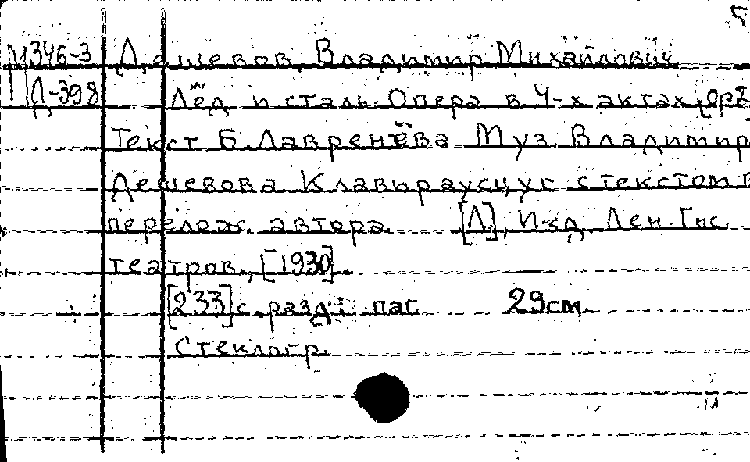 М346-3 Дешевов, Владимир Михайлович
Д-398 Лёд и сталь Опера в 4-х актах
Текст Б. Лавренёва Муз Владимир
Дешевова Клавираусцуг с текстом
перелож. автора. [Л], Изд. Лен. Гос.
театров, [1930].
[233] с. разд. паг. 29см.
Стеклогр.